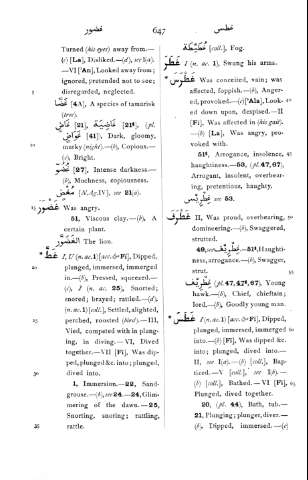 غضور
647
غطس
Turned (his eyes) away from.—
(c) [La], Disliked.—(d), see I(a).
—VI ['An], Looked away from;
ignored, pretended not to see;
disregarded, neglected.
[4A], A species of tamarisk
(tree).
[41]), Dark, gloomy,
murky (night).—(b), Copious.—
(c), Bright.
[27], Intense darkness—
(b), Muchness, copiousness.
[N. Ag. IV], see 21(a).
Was angry.
51, Viscous clay.—(b), A
certain plant.
The lion.
I, U (n. ac. 1) [acc. & Fi], Dipped,
plunged, immersed, immerged
in.—(b), Pressed, squeezed.—
(c), I (n. ac. 25), Snorted;
snored; brayed; rattled.—(d),
(n. ac. 1) [coll.], Settled, alighted,
perched, roosted (bird).—III,
Vied, competed with in plung-
ing, in diving.—VI, Dived
together.—VII [Fi], Was dip-
ped, plunged &c. into; plunged,
dived into.
1, Immersion.—22, Sand-
grouse.—(b), see 24.—24, Glim-
mering of the dawn.—25,
Snorting, snoring; rattling,
rattle.
[coll.], Fog.
I (n. ac. 1), Swung his arms.
Was conceited, vain; was
affected, foppish.—(b), Anger-
ed, provoked.—(c) ['Ala], Look-
ed down upon, despised.—II
[Fi], Was affected in (his gait).
—(b) [La], Was angry, pro-
voked with.
Arrogance, insolence,
haughtiness.—53, (pl. 47, 67),
Arrogant, insolent, overbear-
ing, pretentious, haughty.
see 53.
II, Was proud, overbearing,
domineering.—(b), Swaggered,
strutted.
Haughti-
ness, arrogance.—(b), Swagger,
strut.
Young
hawk.—(b), Chief, chieftain;
lord.—(b), Goodly young man.
I (n. ac. 1) [acc. & Fi], Dipped,
plunged, immersed, immerged
into.—(b) [Fi], Was dipped &c.
into; plunged, dived into.—
II, see I(a).—(b) [coll.], Bap-
tized.—V [coll.], see I(b).—
(b) [coll.], Bathed.—VI [Fi],
Plunged, dived together.
20, (pl. 44), Bath, tub.—
21, Plunging; plunger, diver.—
(b), Dipped, immersed.—(c)